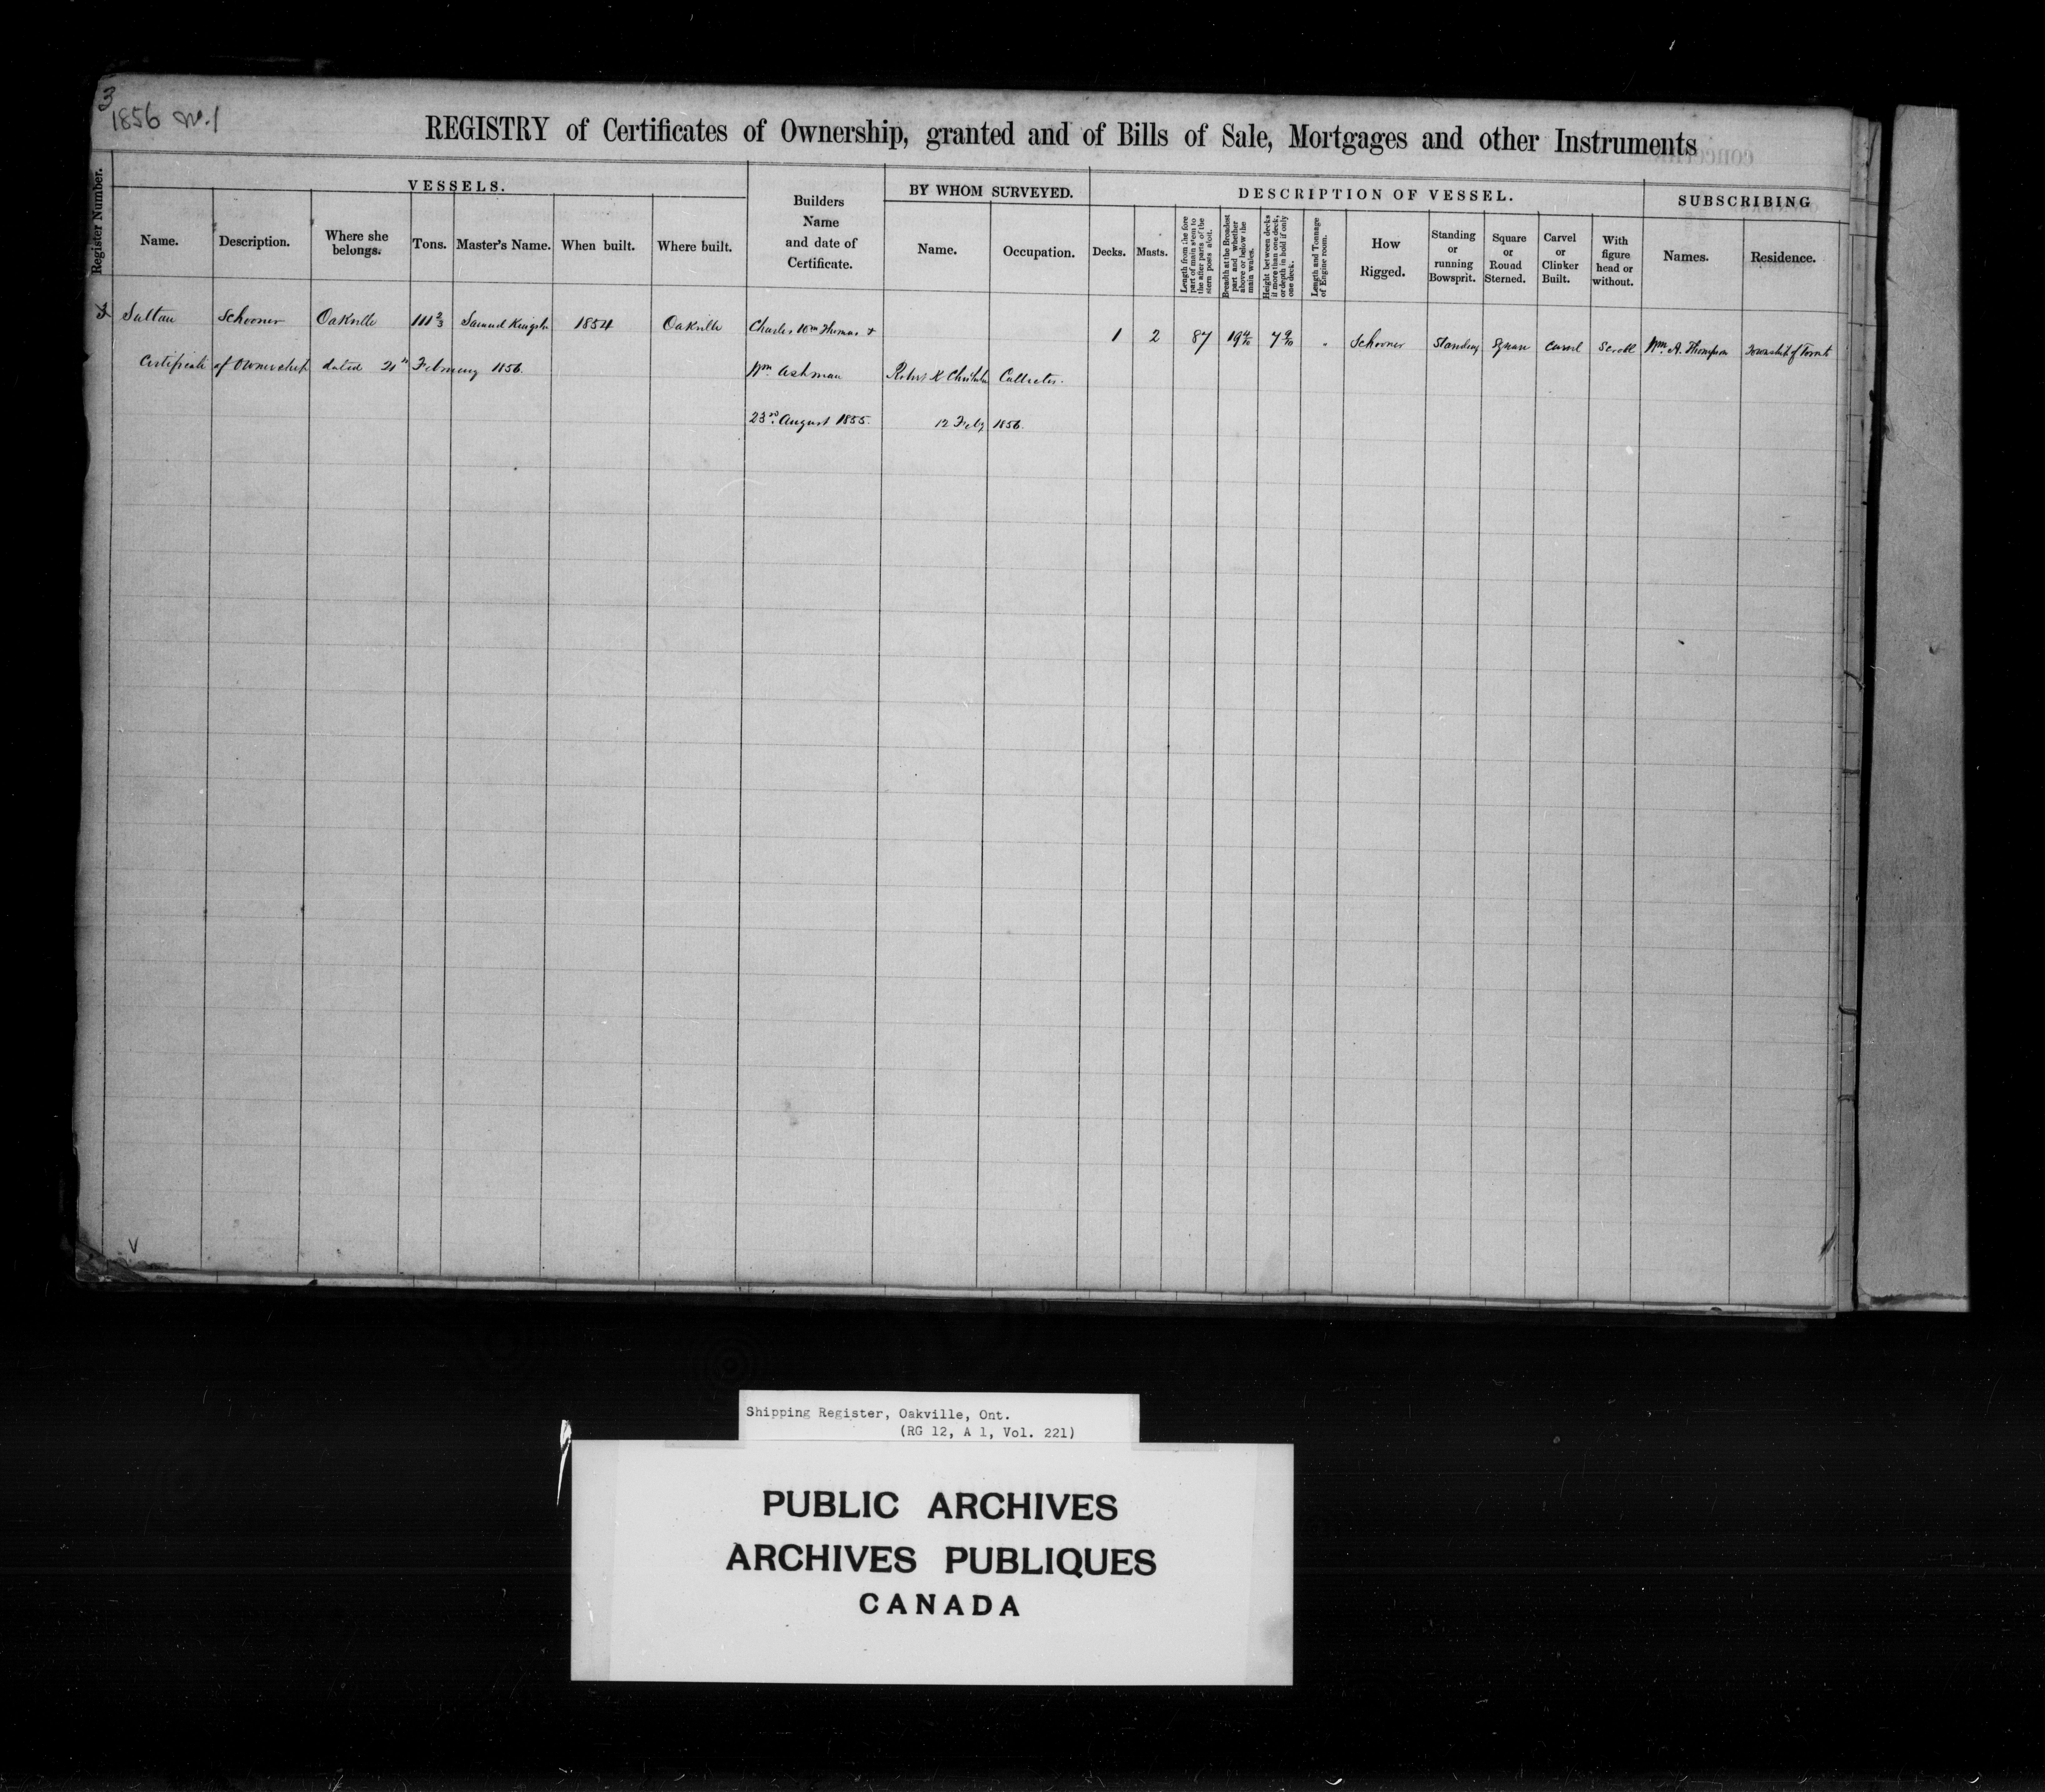 3
1856 No. 1
REGISTRY of Certificates of Ownership, granted and of Bills of Sale, Mortgages and other Instruments
Register Number.
VESSELS.
Name.
Description.
Where she belongs.
Tons.
Master's Name.
When built.
Where built.
Builders Name and date of Certificate.
BY WHOM SURVEYED.
Name.
Occupation.
DESCRIPTION OF VESSEL.
Decks.
Masts.
Length from the fore part of main stem to the after parts of the stern posts aloft.
Breadth at the Broadest part and whether above or below the main wales.
Height between decks if more than one deck, or depth in hold if only one deck.
Length and Tonnage of Engine room.
How Rigged.
Standing or running Bowsprit.
Square or Round Sterned.
Carvel or Clinker Built.
With figure head or without.
SUBSCRIBING
Names.
Residence.
Sultan Schooner Oakville 111 2/3 Samuel 1854 Oakville Charles Wm Thomas + 1 2 87 19 4/10 7 9/10 " Schooner Standing Square Carvel Scroll Wm. A. Thompson Township of Toronto
Certificate of Ownership dated 21st February 1856. Wm. Ashman Robert K Chisholm Collector.
23rd. August 1855. 12 Feby 1856.
V
Shipping Register, Oakville, Ont.
(RG 12, A 1, Vol. 221)
PUBLIC ARCHIVES
ARCHIVES PUBLIQUES
CANADA